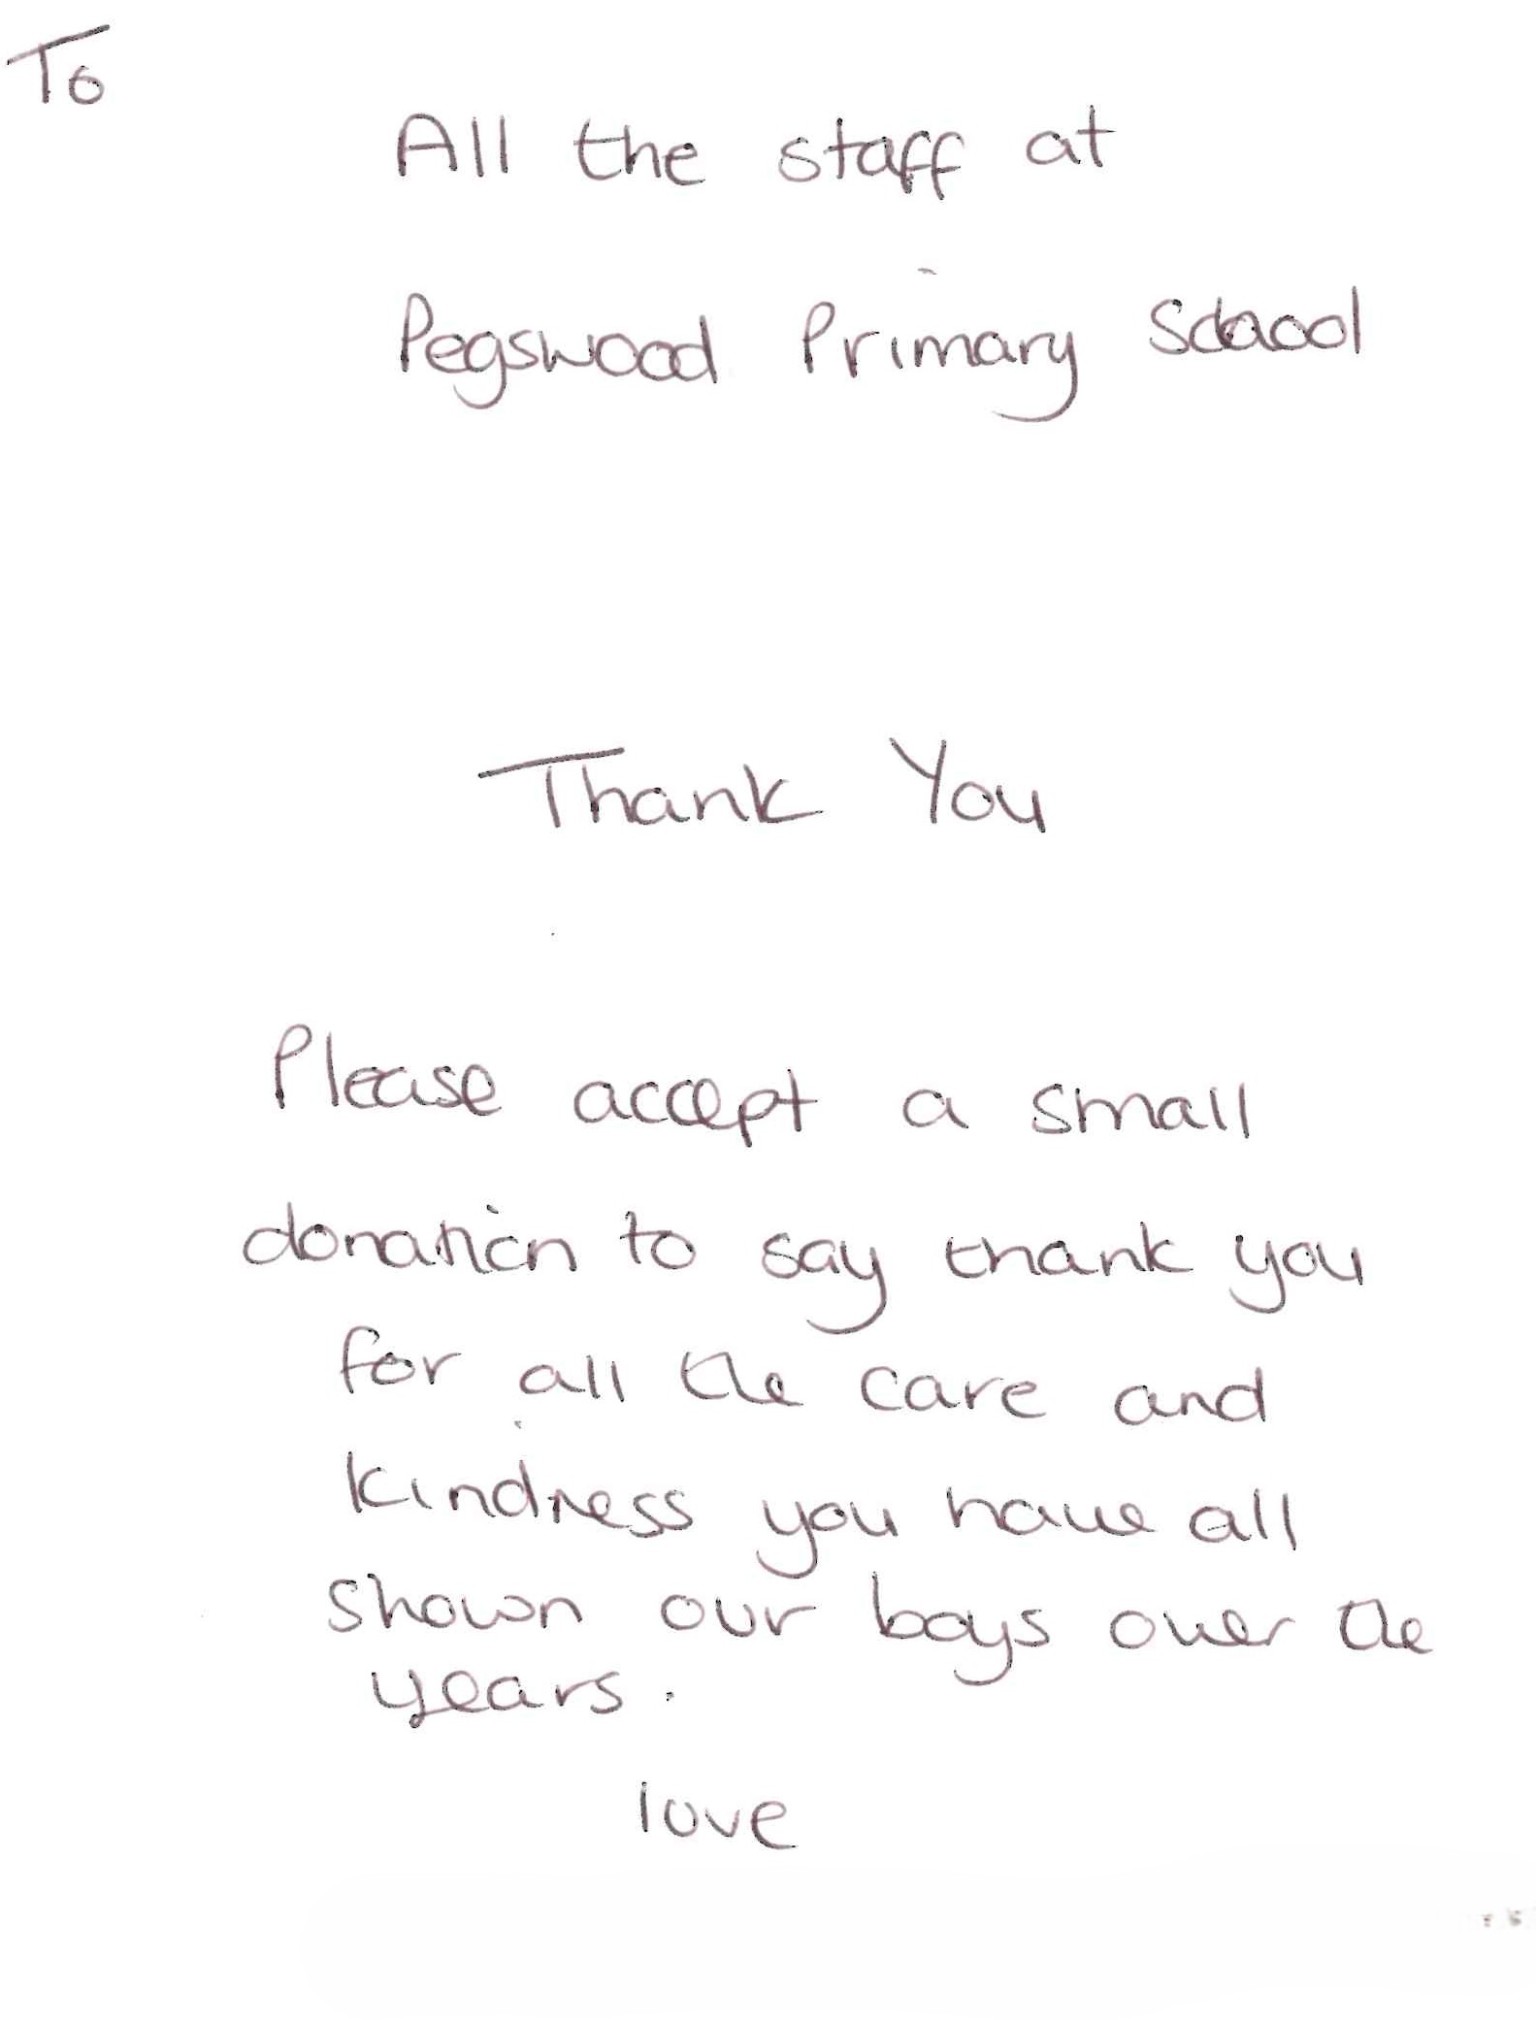 To
All the staff at
Pegswood Primary School
Thank You
Please accept a small
donation to say thank you
for all the care and
kindness you have all
shown our boys over the
years.
love